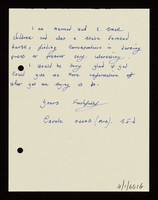 I am married with 2 small
children and also a state trained
nurse; finding conversations in nursing
press or firesor very interesting.
I would be very glad if you
could give me more information of
what you are trying to do.
Yours faithfully
Carole (Mrs). S.E.N